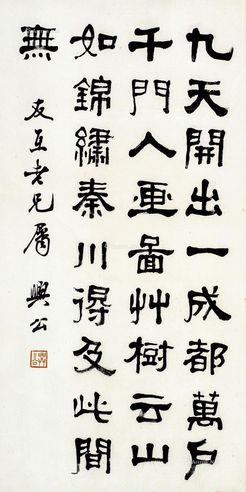 九天開出一成都萬戶
千門入畫圖艸樹云山
如錦繡秦川得及此間
無
友互老兄屬 公